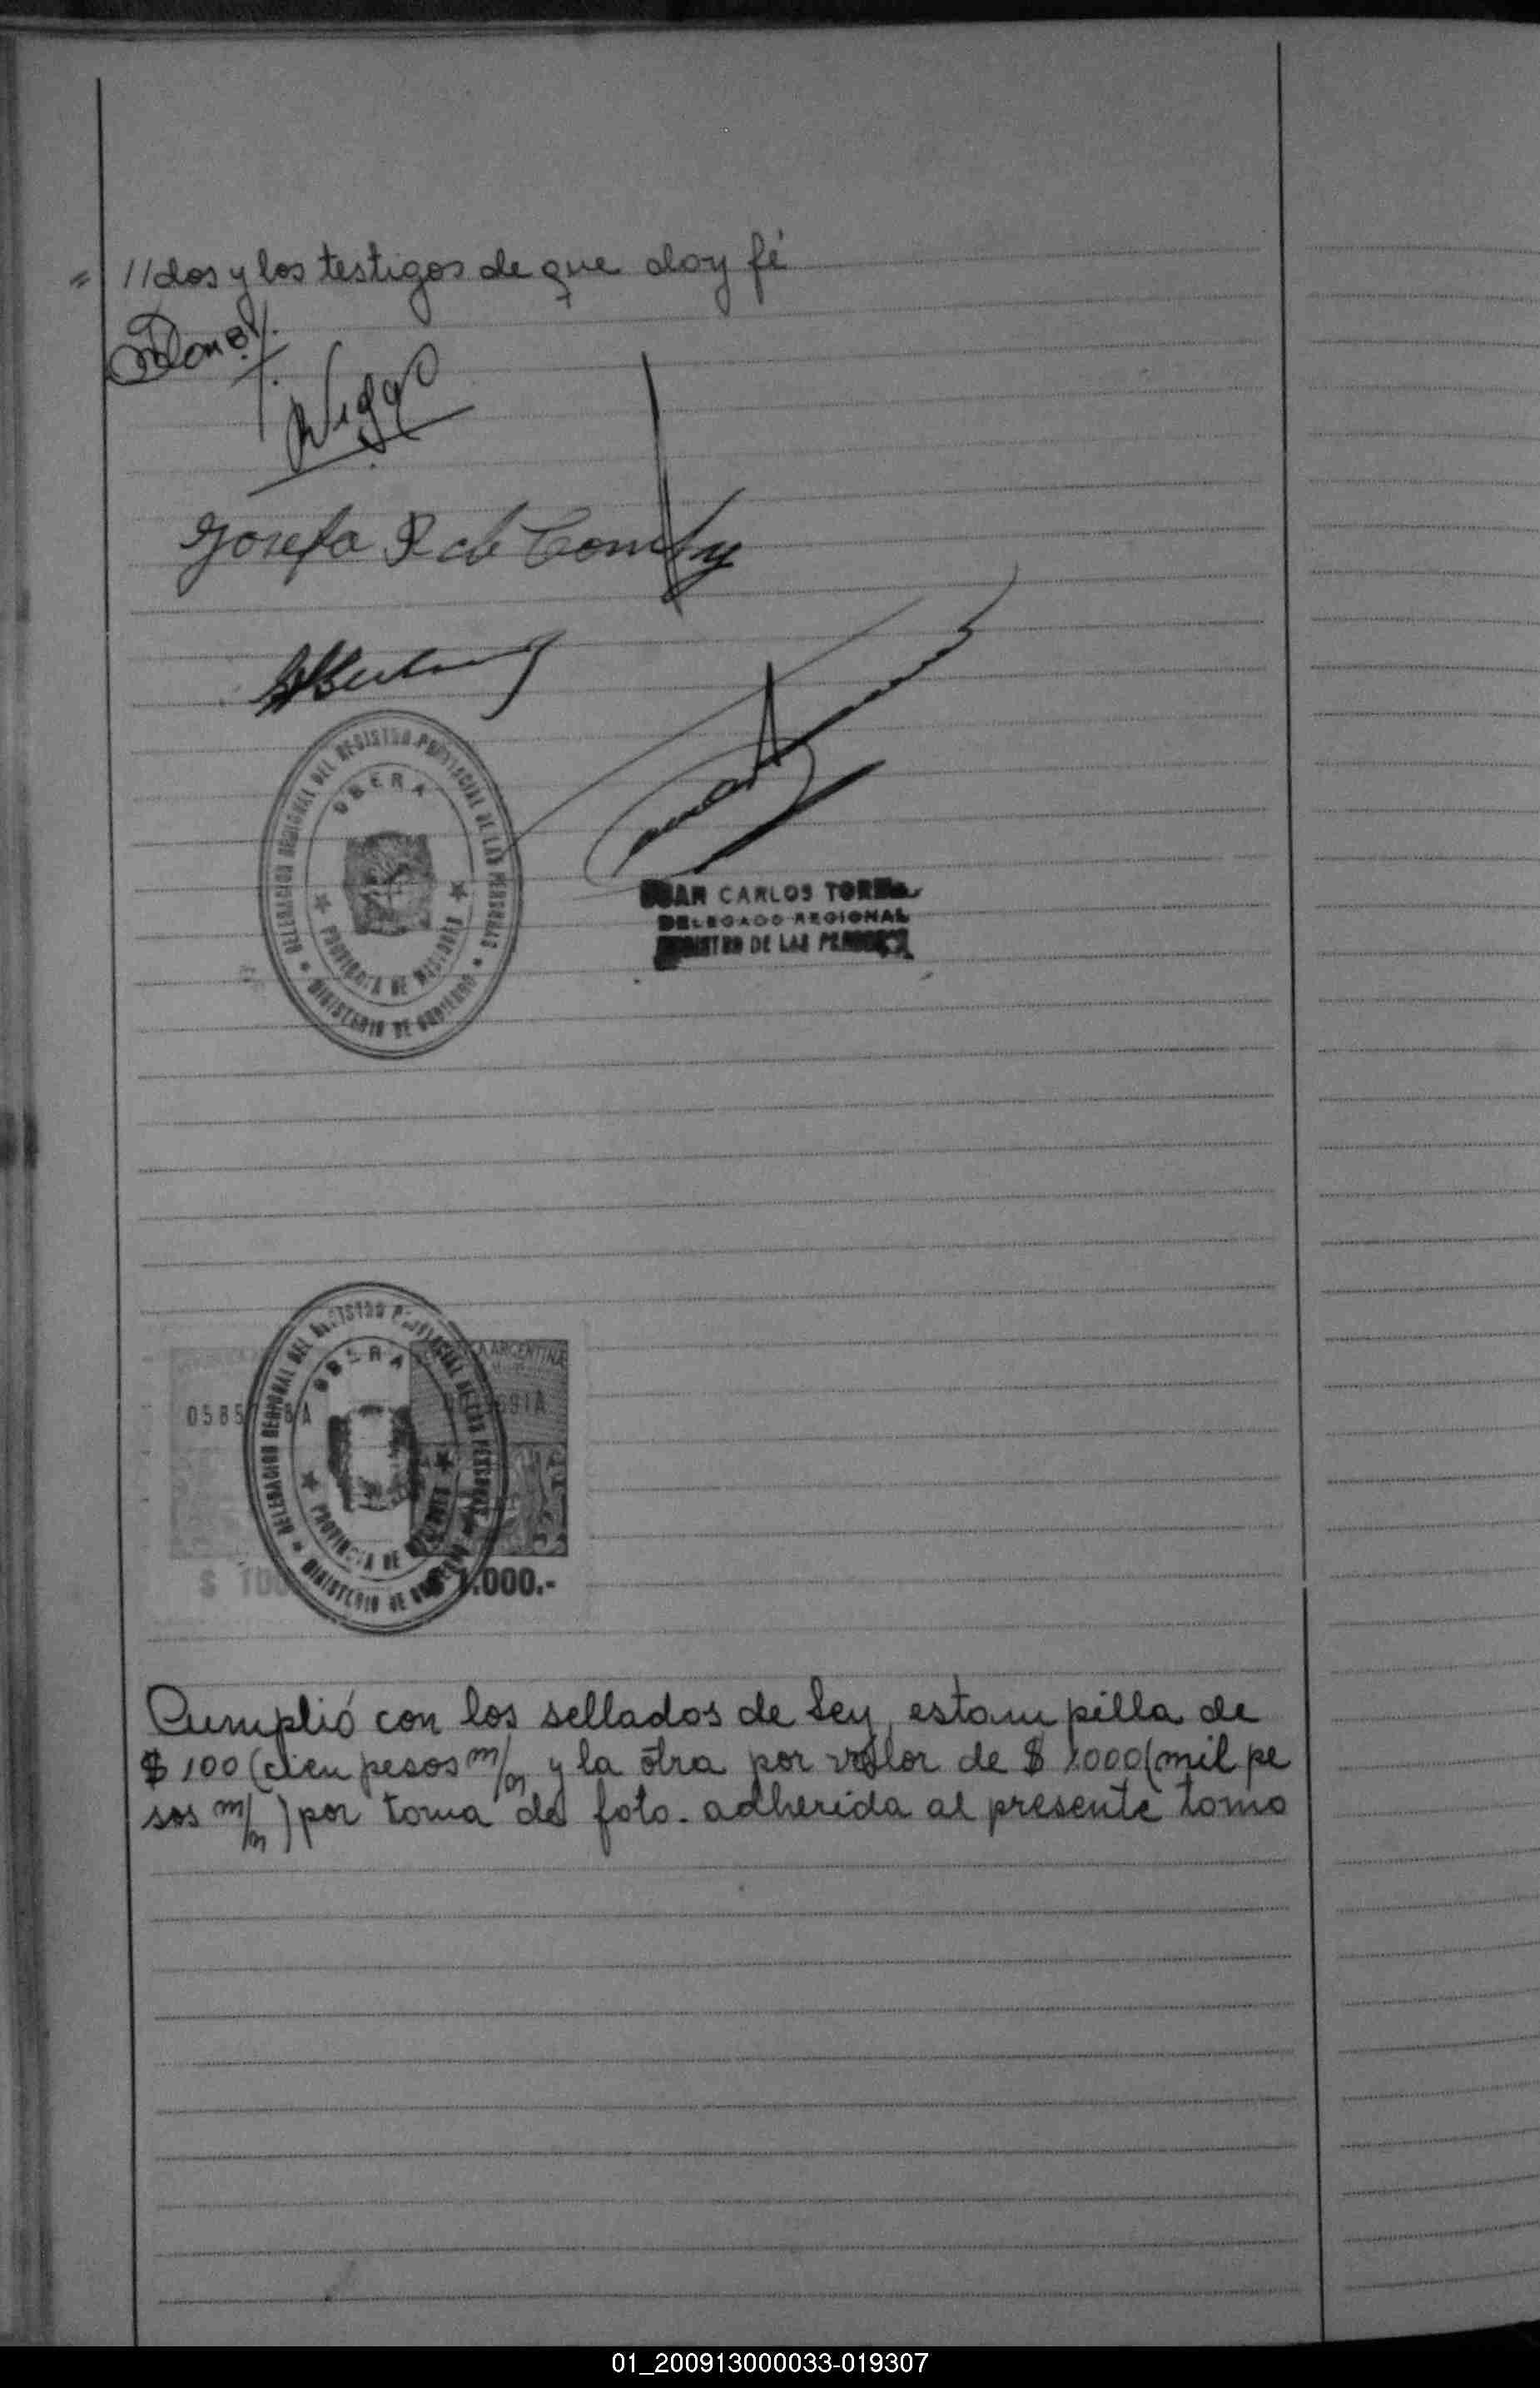 = //dos y los testigos de que doy fé
Josefa R de
DELEGACION REGIONAL DEL REGISTRO PROVINCIAL DE LAS PERSONAS
OBERA
PROVINCIA DE MISIONES
MINISTERIO DE GOBIERNO
JUAN CARLOS
DELEGADO REGIONAL
REGISTRO DE LAS PERSONAS
DELEGACION REGIONAL DEL REGISTRO PROVINCIAL DE LAS PERSONAS
OBERA
PROVINCIA DE MISIONES
MINISTERIO DE GOBIERNO
ARGENTINA
$ 100
$ 1.000.-
Cumplió con los sellados de Ley, estampilla de
$ 100 (cien pesos m/n y la otra por valor de $ 1.000 (mil pe
sos m/n) por toma de foto. adherida al presente tomo
01_200913000033-019307